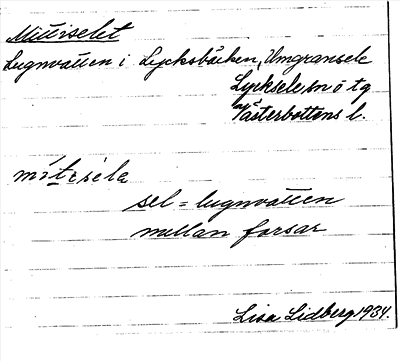 Lugnvatten i Lycksbäcken, Umgransele
Lycksele sn o tg
Västerbottens l.
sel = lugnvatten
mellan forsar
Lisa Lidberg 1934.